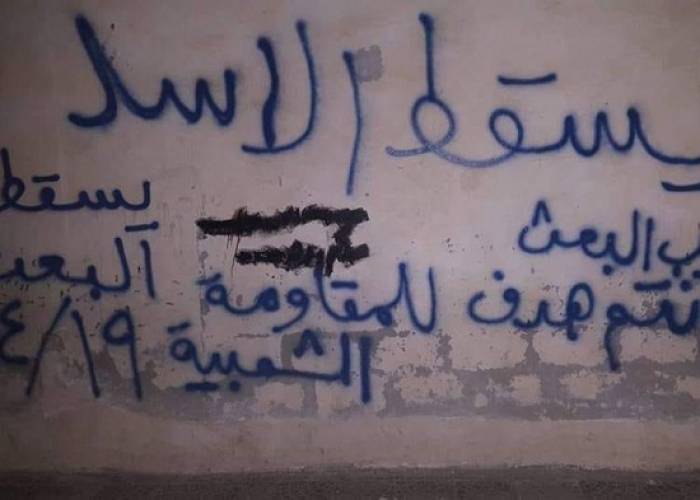 يسقط الاسد
البعث
انتم هدف للمقاومة
الشعبية
يسقط
البعث
٤/١٩